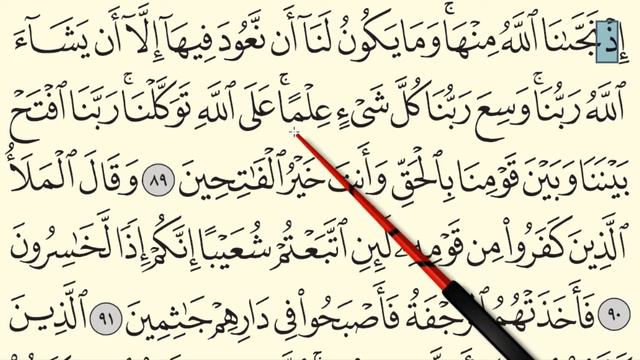 إِذْ نَجَّىٰنَا ٱللَّهُ مِنْهَا ۚ وَمَا يَكُونُ لَنَآ أَن نَّعُودَ فِيهَآ إِلَّآ أَن يَشَآءَ
ٱللَّهُ رَبُّنَا ۚ وَسِعَ رَبُّنَا كُلَّ شَىْءٍ عِلْمًا ۚ عَلَى ٱللَّهِ تَوَكَّلْنَا ۚ رَبَّنَا ٱفْتَحْ
بَيْنَنَا وَبَيْنَ قَوْمِنَا بِٱلْحَقِّ وَأَنتَ خَيْرُ ٱلْفَٰتِحِينَ ٨٩ وَقَالَ ٱلْمَلَأُ
ٱلَّذِينَ كَفَرُوا۟ مِن قَوْمِهِۦ لَئِنِ ٱتَّبَعْتُمْ شُعَيْبًا إِنَّكُمْ إِذًا لَّخَٰسِرُونَ
٩٠ فَأَخَذَتْهُمُ ٱلرَّجْفَةُ فَأَصْبَحُوا۟ فِى دَارِهِمْ جَٰثِمِينَ ٩١ ٱلَّذِينَ